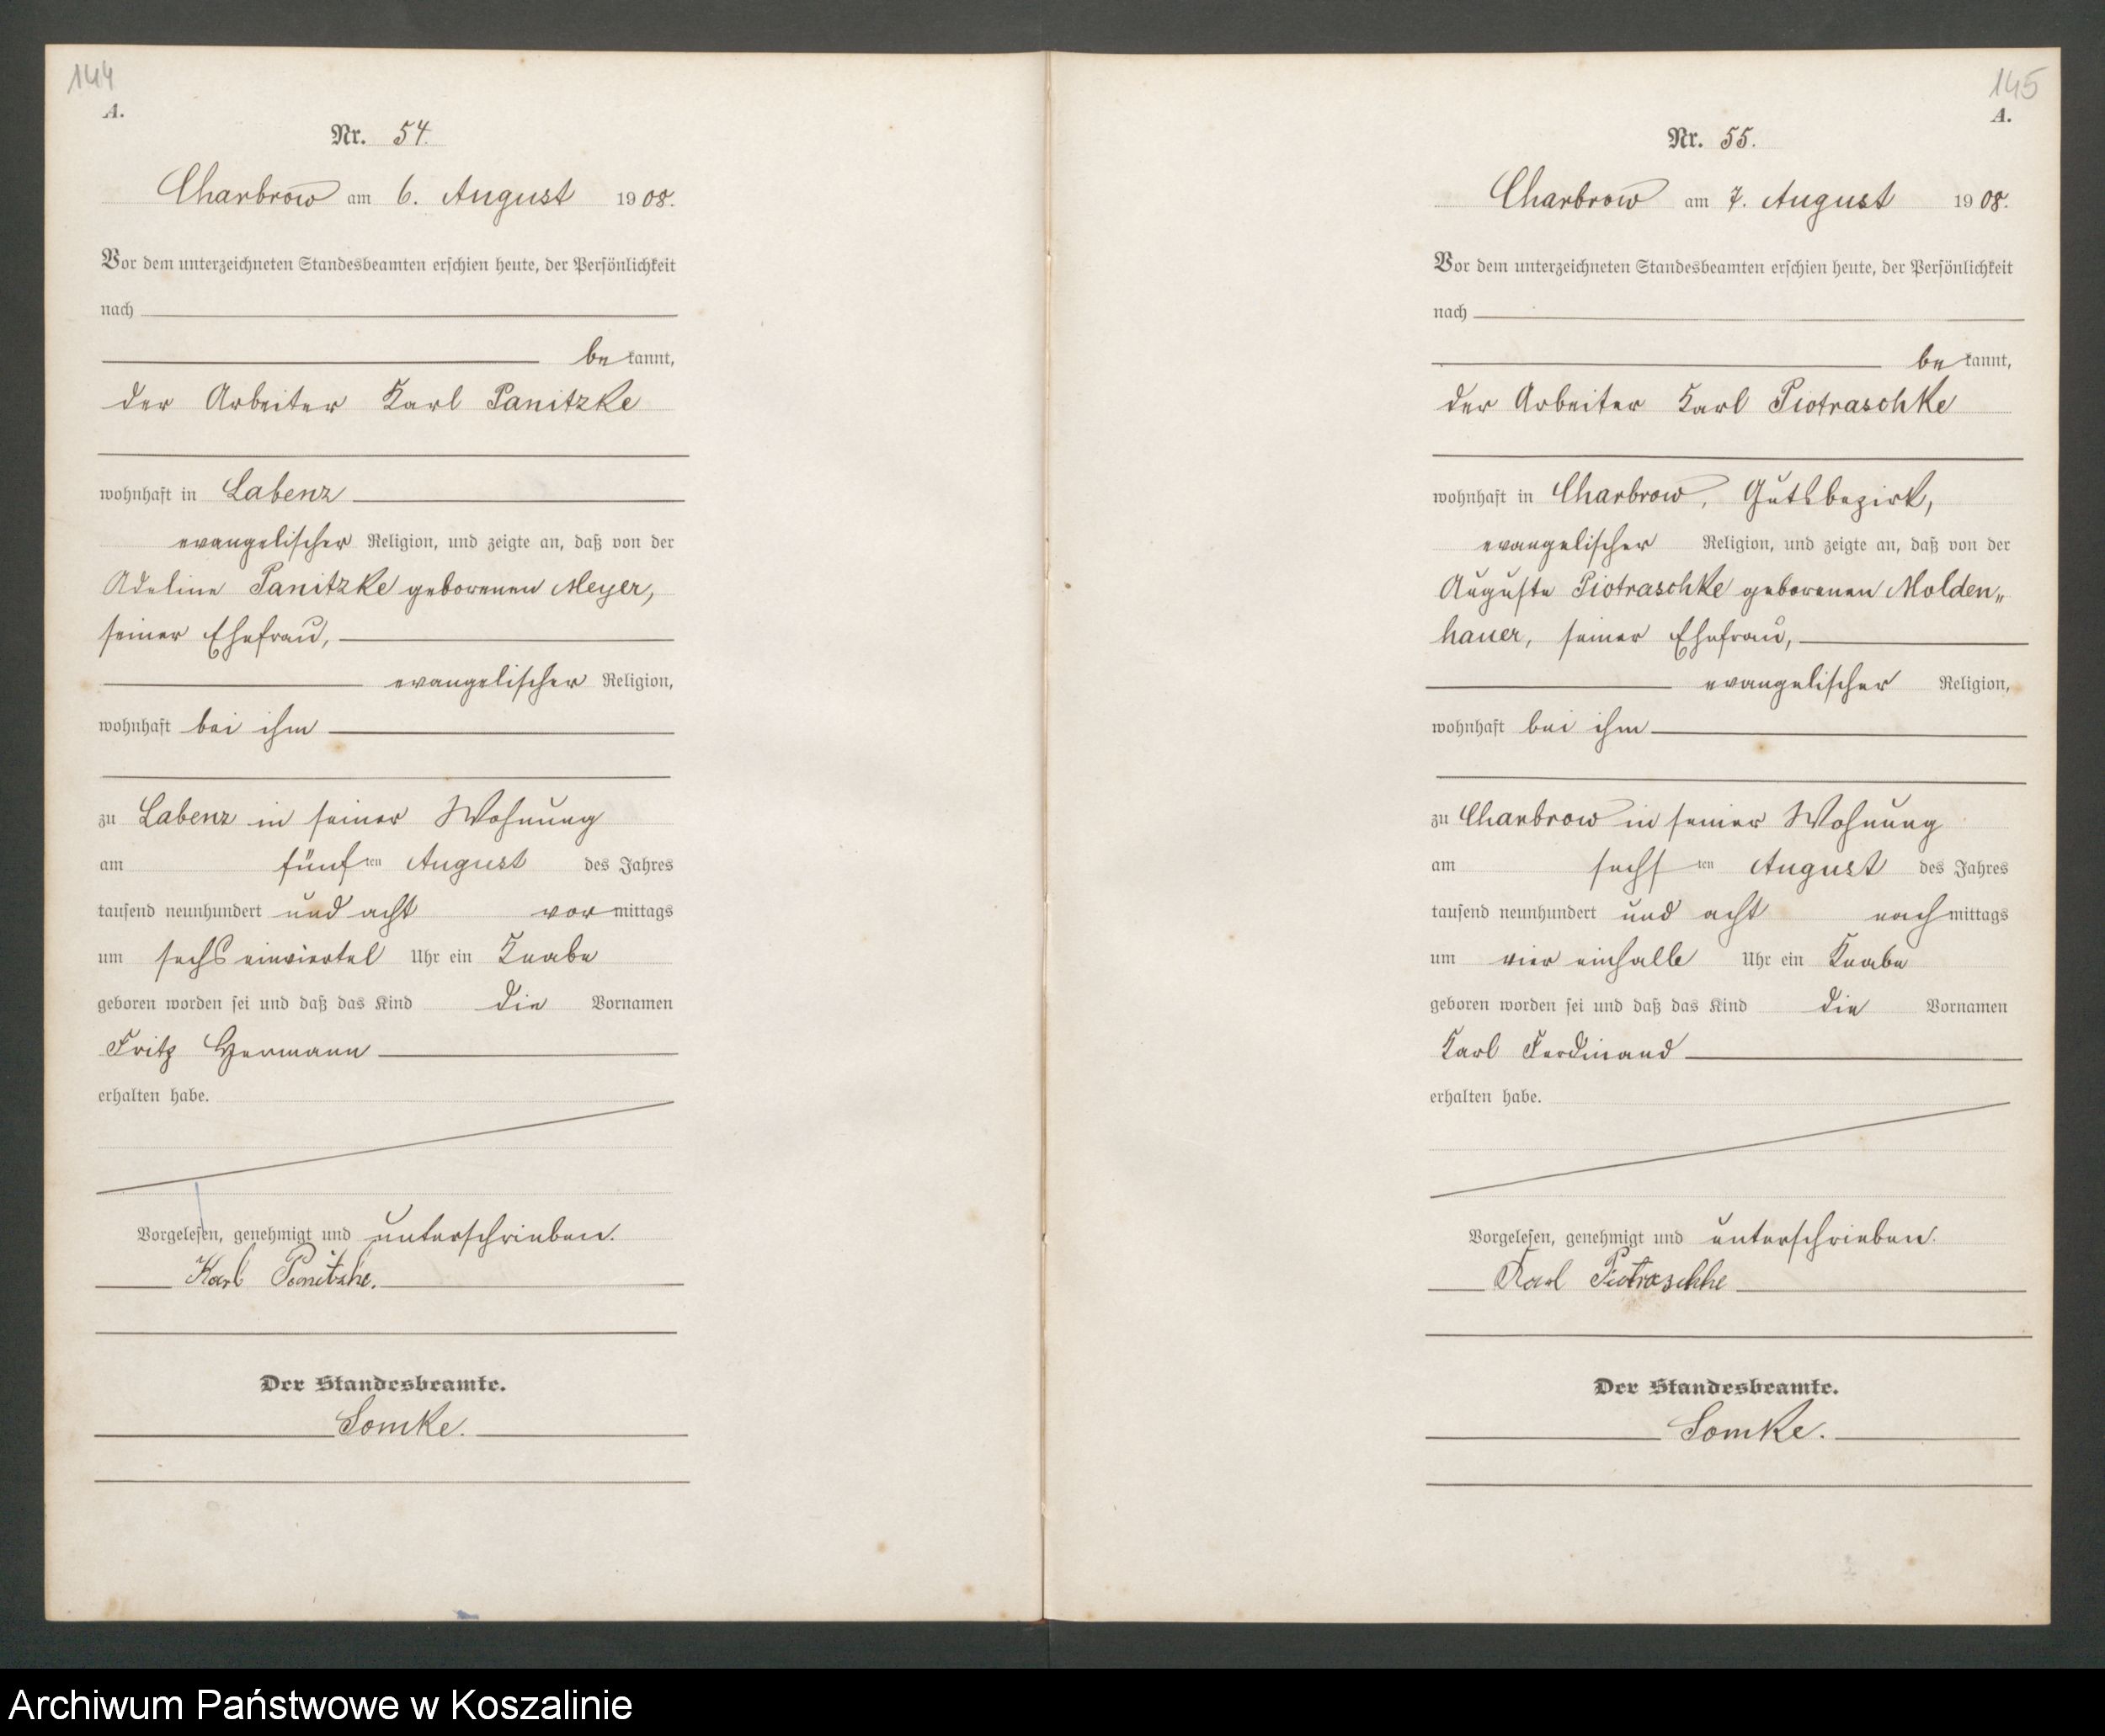 144
A.
Nr. 54.
Charbrow am 6. August 1908.
Vor dem unterzeichneten Standesbeamten erschien heute, der Persönlichkeit
nach
bekannt,
der Arbeiter Karl Panitzke
wohnhaft in Labenz
evangelischer Religion, und zeigte an, daß von der
Adeline Panitzke geborenen Meyer,
seiner Ehefrau,
evangelischer Religion,
wohnhaft bei ihm
zu Labenz in seiner Wohnung
am fünften August des Jahres
tausend neunhundert und acht vormittags
um sechs einviertel Uhr ein Knabe
geboren worden sei und daß das Kind die Vornamen
Fritz Hermann
erhalten habe.
Vorgelesen, genehmigt und unterschrieben.
Karl Panitzke.
Der Standesbeamte.
Somke.
145
A.
Nr. 55.
Charbrow am 7. August 1908.
Vor dem unterzeichneten Standesbeamten erschien heute, der Persönlichkeit
nach
bekannt,
der Arbeiter Karl Piotraschke
wohnhaft in Charbrow, Gutsbezirk,
evangelischer Religion, und zeigte an, daß von der
Auguste Piotraschke geborenen Molden„
hauer, seiner Ehefrau,
evangelischer Religion,
wohnhaft bei ihm
zu Charbrow in seiner Wohnung
am sechsten August des Jahres
tausend neunhundert und acht nachmittags
um vier einhalb Uhr ein Knabe
geboren worden sei und daß das Kind die Vornamen
Karl Ferdinand
erhalten habe.
Vorgelesen, genehmigt und unterschrieben.
Karl Piotraschke
Der Standesbeamte.
Somke.
Archiwum Państwowe w Koszalinie